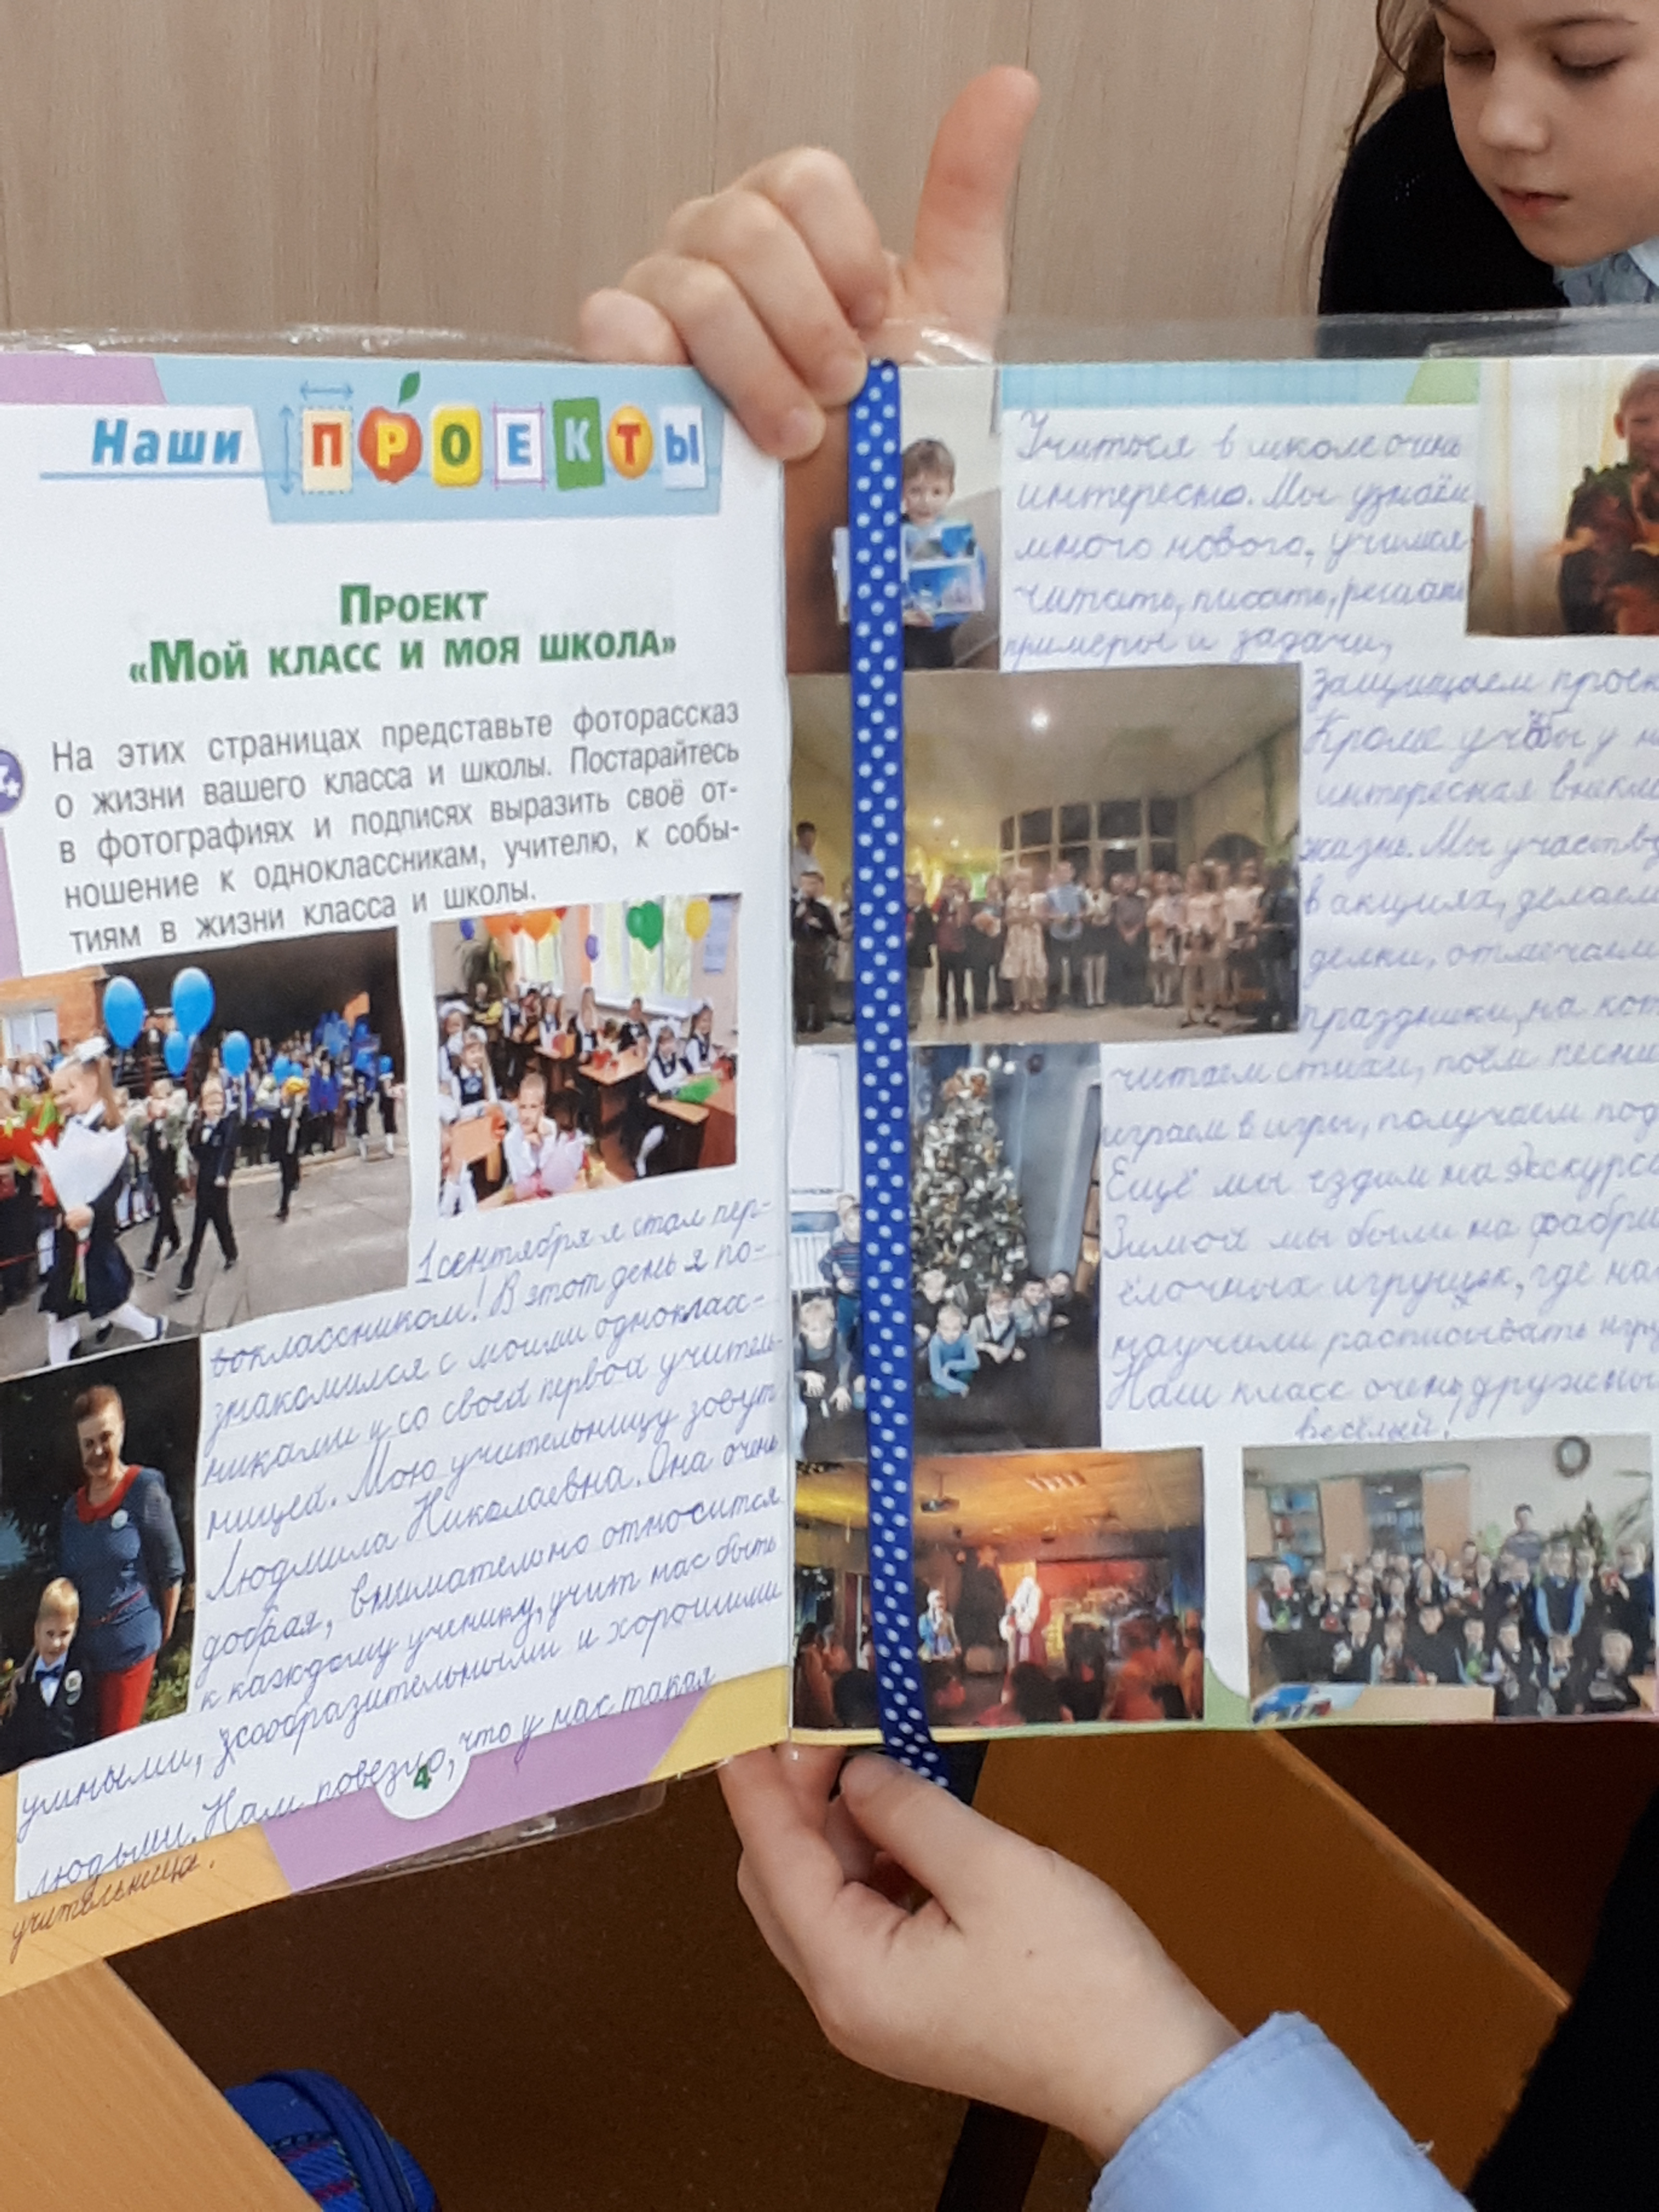 Наши ПРОЕКТЫ
ПРОЕКТ
«МОЙ КЛАСС И МОЯ ШКОЛА»
На этих страницах представьте фоторассказ
о жизни вашего класса и школы. Постарайтесь
в фотографиях и подписях выразить своё от-
ношение к одноклассникам, учителю, к собы-
тиям в жизни класса и школы.
1 сентября я стал пер-
воклассником! В этот день я по-
знакомился с моими однокласс-
никами и со своей первой учитель-
ницей. Мою учительницу зовут
Людмила Николаевна. Она очень
добрая, внимательно относится
к каждому ученику, учит нас быть
умными, сообразительными и хорошими
людьми. Нам повезло, что у нас такая
учительница.
4
Учиться в школе очень
интересно. Мы узнаём
много нового, учимся
читать, писать, решать
примеры и задачи,
защищаем проек
Кроме учёбы у н
интересная внекла
жизнь. Мы участву
в акциях, делаем
делки, отмечаем
праздники, на кот
читаем стихи, поём песни
играем в игры, получаем под
Ещё мы ездим на экскурс
Зимой мы были на фабри
ёлочных игрушек, где на
научили расписывать игру
Наш класс очень дружный
весёлый.